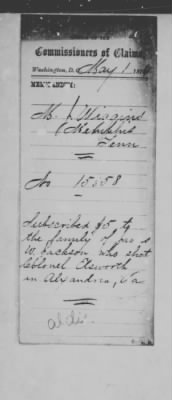 Commissioners of Claims
Washington, D.C. May 1
MEMORANDUM:
M. J. Wiggins
Memphis
Tenn
No 15558
Subscribed $5 to
the family of
W. Jackson who shot
Colonel Elsworth
in Alexandria, Va